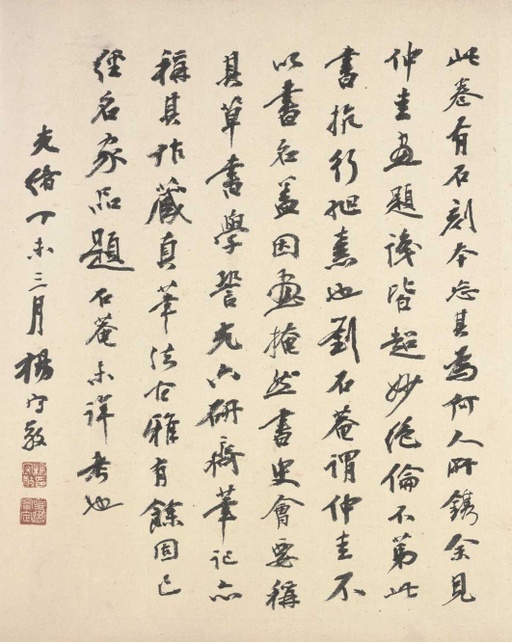 此卷有石刻本忘其為何人所鐫余見
仲圭畫題識皆超妙絕倫不第此
書抗行旭素也劉石菴謂仲圭不
以書名蓋因畫掩然書史會要稱
其草書學光六研齋筆記亦
稱其作藏真筆法古雅有餘固已
經名家品題石菴未詳考也
光緒丁未三月楊守敬